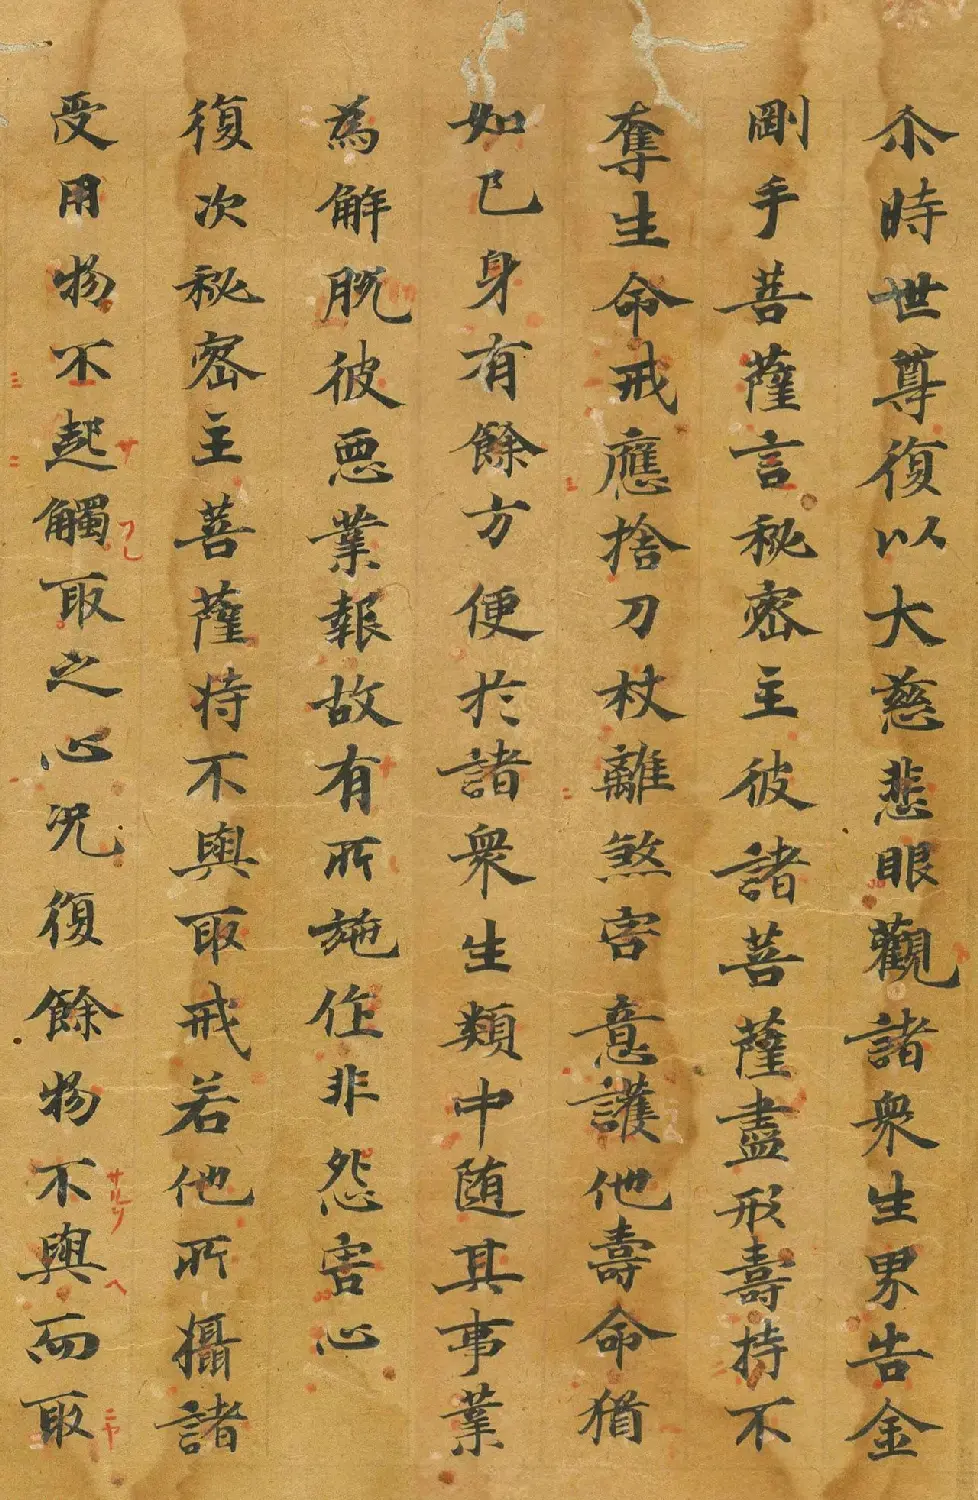 尒時世尊復以大慈悲眼觀諸衆生界告金
剛手菩薩言秘密主彼諸菩薩盡形壽持不
奪生命戒應捨刀杖離煞害意護他壽命猶
如已身有餘方便於諸衆生類中随其事業
為解脱彼惡業報故有所施作非怨害心
復次秘密主菩薩持不與取戒若他所攝諸
受用物不起觸取之心况復餘物不與而取